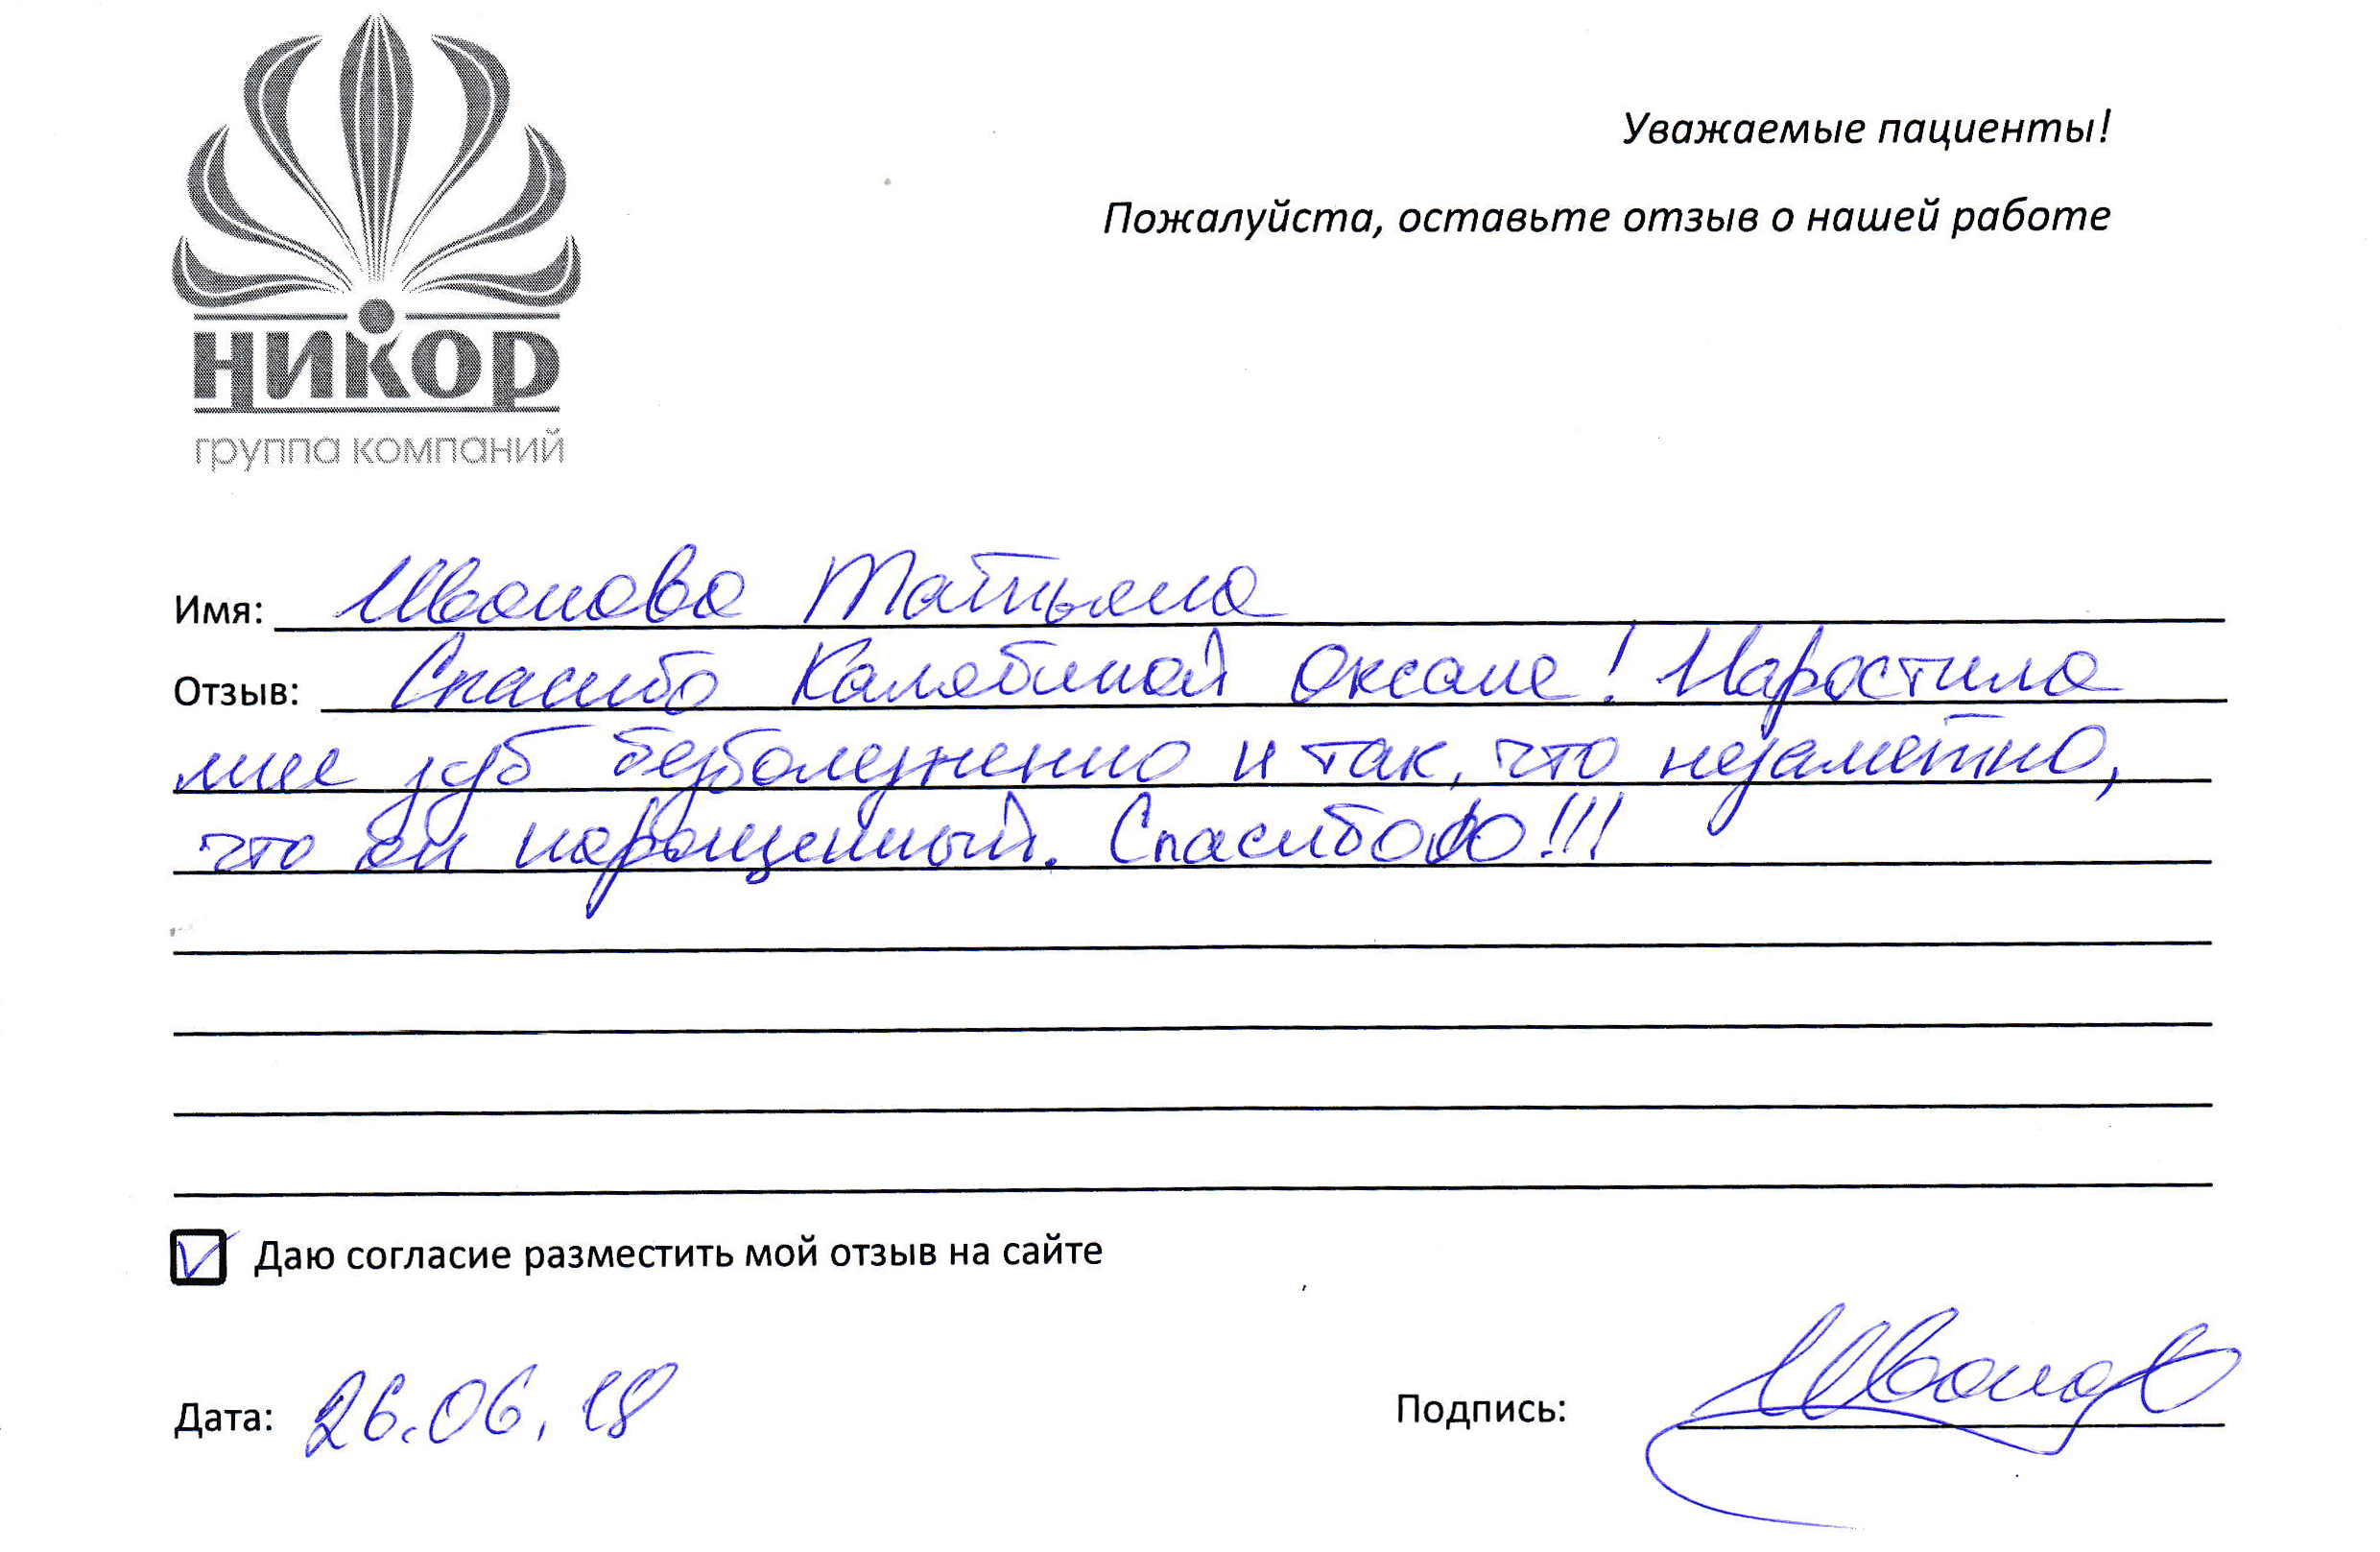 Уважаемые пациенты!
Пожалуйста, оставьте отзыв о нашей работе
НИКОР
группа компаний
Имя: Иванова Татьяна
Отзыв: Спасибо Калябиной Оксане! Наростила
мне зуб безболезненно и так, что незаметно,
что он наращенный. Спасибооо!!!
Даю согласие разместить мой отзыв на сайте
Дата: 26.06.18
Подпись: Иванова